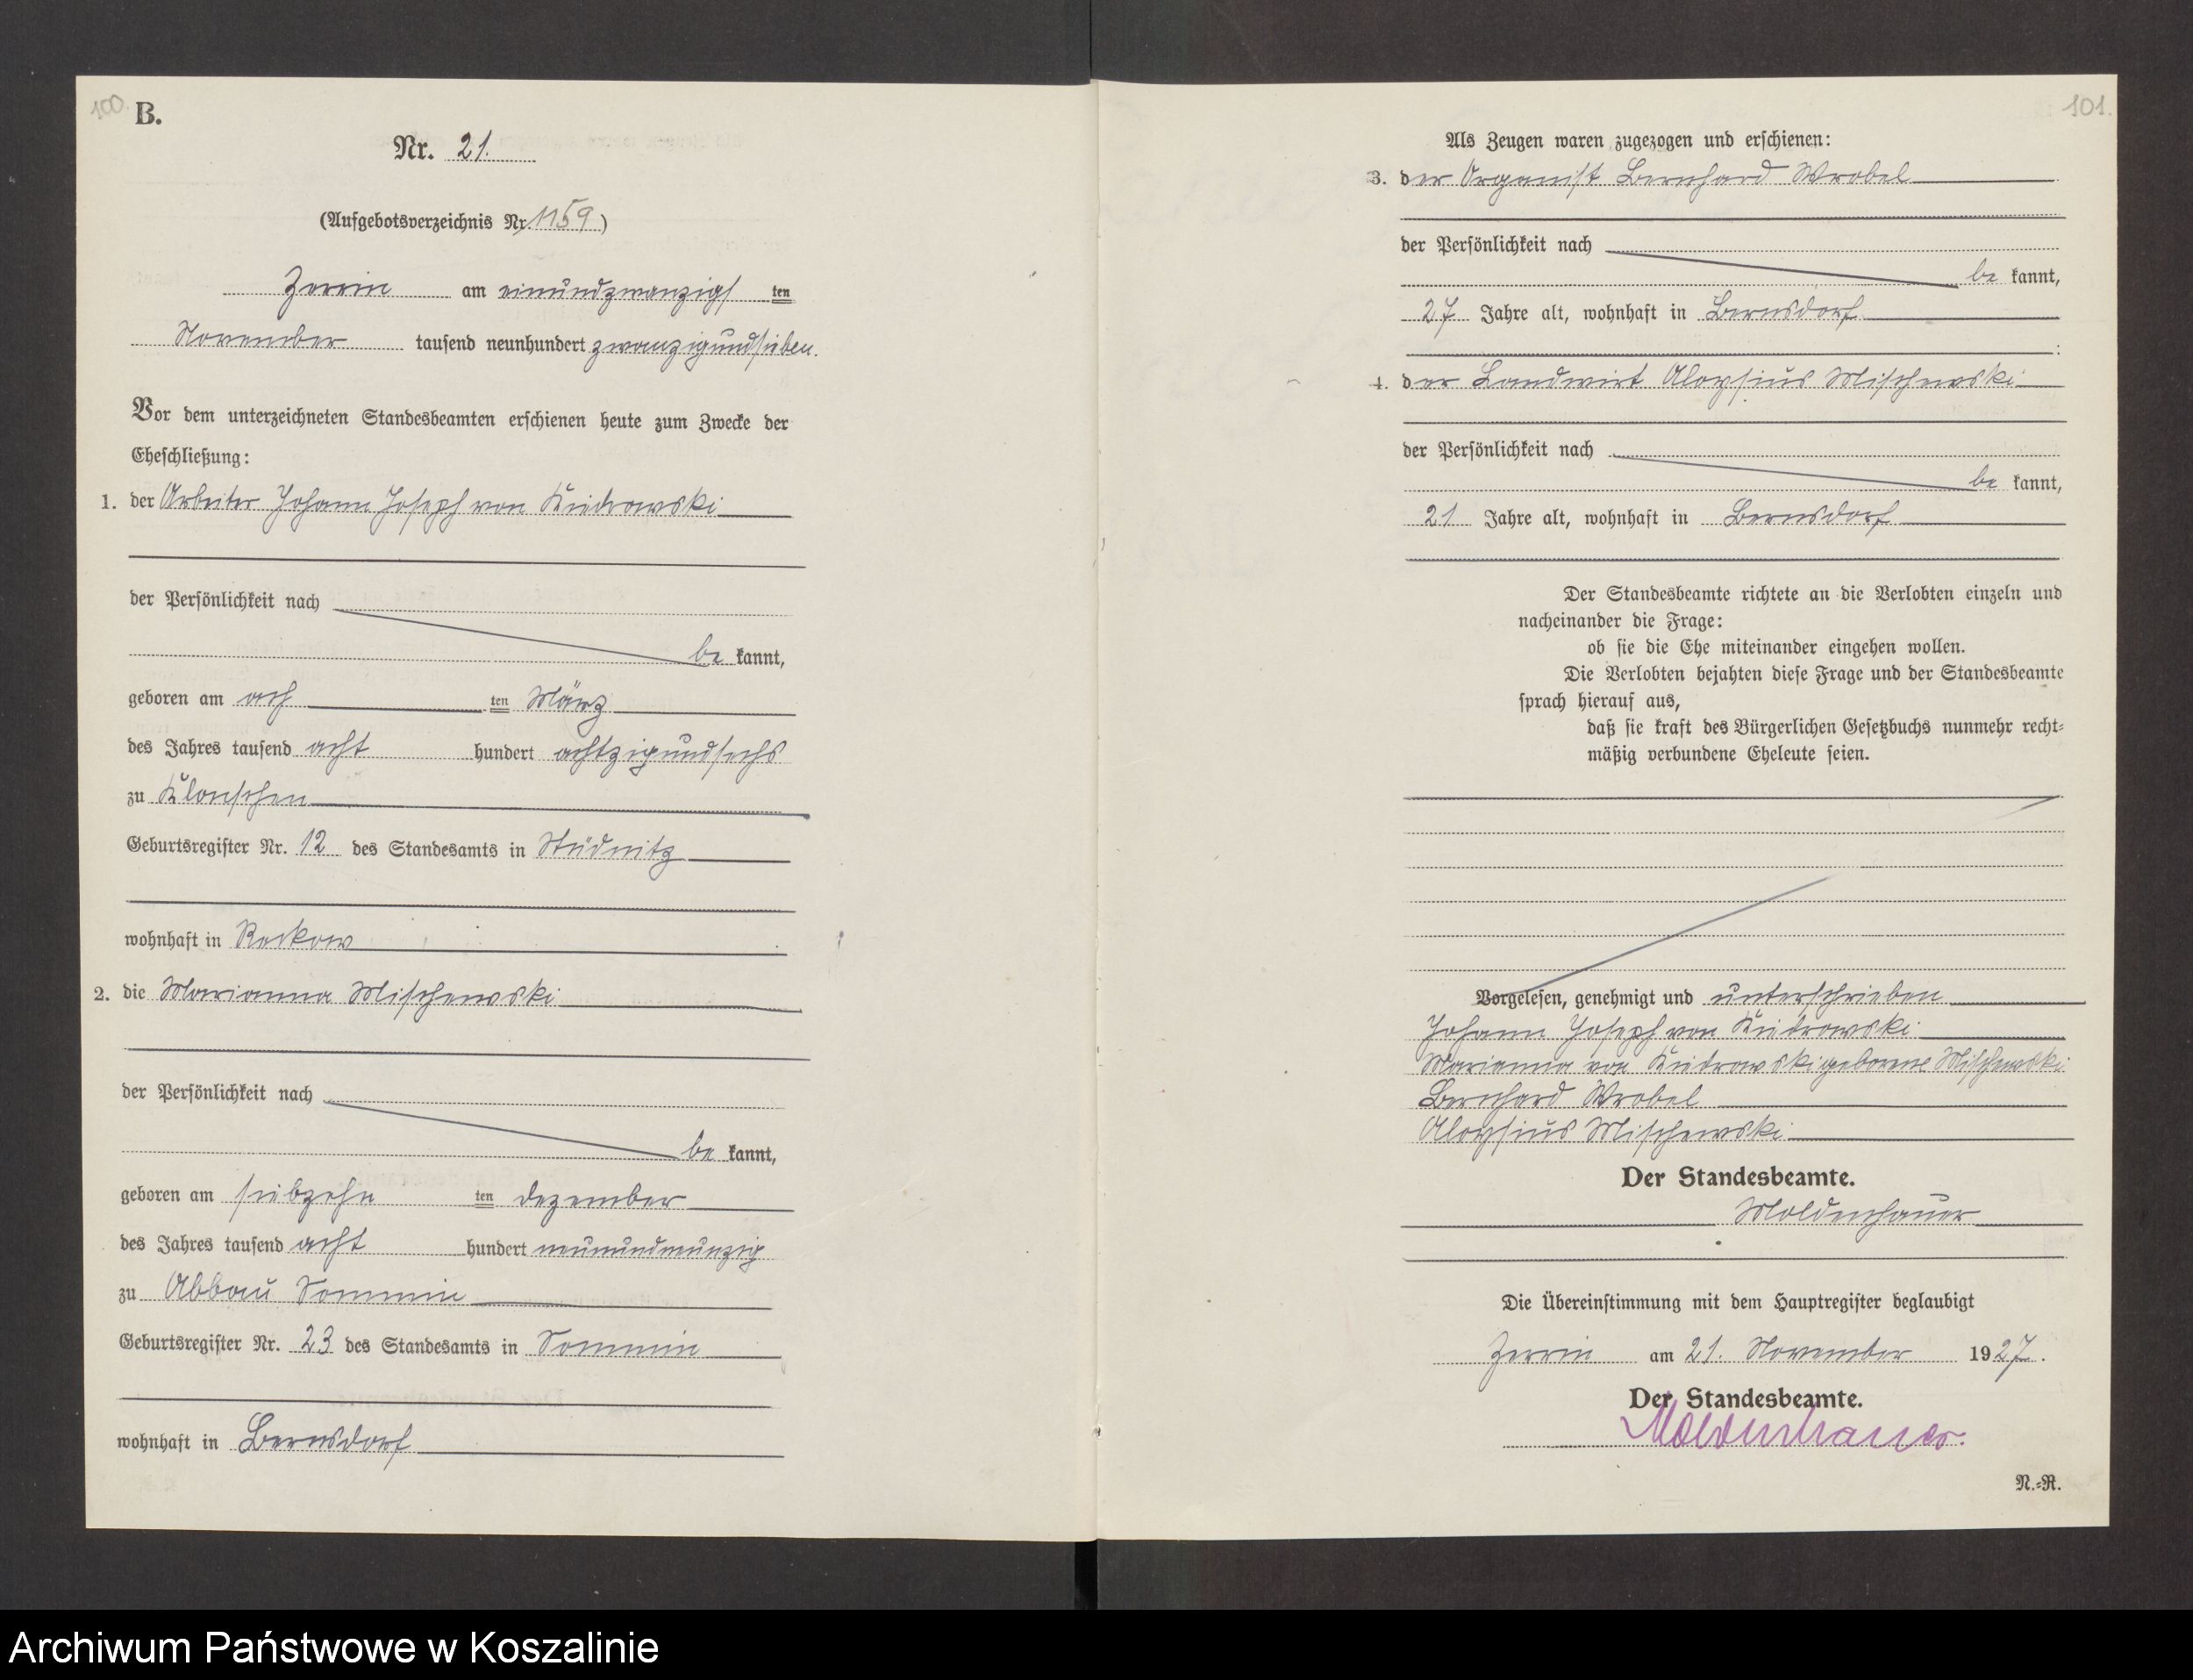 100.
B.
Nr. 21.
(Aufgebotsverzeichnis Nr. 1159)
Zerrin am einundzwanzigsten
November tausend neunhundert zwanzigundsieben.
Vor dem unterzeichneten Standesbeamten erschienen heute zum Zwecke der
Eheschließung:
1. der Arbeiter Johann Joseph von Kiedrowski
der Persönlichkeit nach
be kannt,
geboren am ach ten März
des Jahres tausend acht hundert achtzigundsechs
zu Klonschen
Geburtsregister Nr. 12 des Standesamts in Stüdnitz
wohnhaft in Reckow
2. die Marianna Mischewski
der Persönlichkeit nach
be kannt,
geboren am siebzehn ten Dezember
des Jahres tausend acht hundert neunundneunzig
zu Abbau Sommin
Geburtsregister Nr. 23 des Standesamts in Sommin
wohnhaft in Bernsdorf
101.
Als Zeugen waren zugezogen und erschienen:
3. der Organist Bernhard Wrobel
der Persönlichkeit nach
be kannt,
27 Jahre alt, wohnhaft in Bernsdorf
:
4. der Landwirt Aloysius Mischewski
der Persönlichkeit nach
be kannt,
21 Jahre alt, wohnhaft in Bernsdorf
Der Standesbeamte richtete an die Verlobten einzeln und
nacheinander die Frage:
ob sie die Ehe miteinander eingehen wollen.
Die Verlobten bejahten diese Frage und der Standesbeamte
sprach hierauf aus,
daß sie kraft des Bürgerlichen Gesetzbuchs nunmehr recht-
mäßig verbundene Eheleute seien.
Vorgelesen, genehmigt und unterschrieben
Johann Joseph von Kiedrowski
Marianna von Kiedrowski geborene Mischewski
Bernhard Wrobel
Aloysius Mischewski
Der Standesbeamte.
Moldenhauer
Die Übereinstimmung mit dem Hauptregister beglaubigt
Zerrin am 21. November 1927.
Der Standesbeamte.
Moldenhauer.
N.-R.
Archiwum Państwowe w Koszalinie